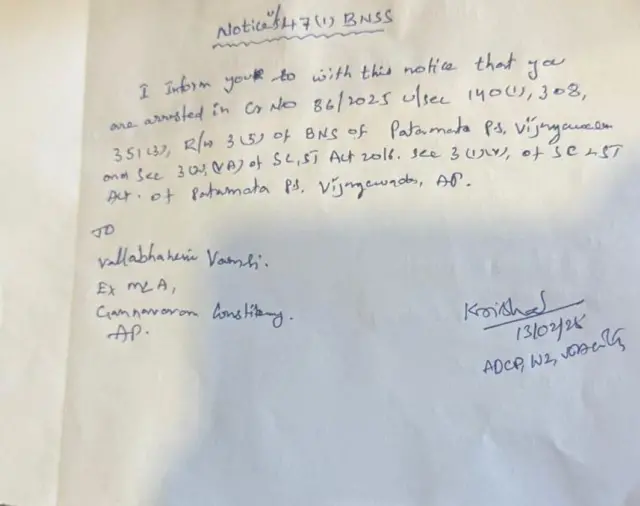 Notice u/s 47(1) BNSS
I Inform you to with this notice that you
are arrested in Cr No 86/2025 u/sec 140(1), 308,
351(3), R/w 3(5) of BNS of Patamata PS, Vijayawada
and Sec 3(2)(VA) of SC, ST Act 2016. Sec 3(1)(r), of SC & ST
Act. of Patamata PS, Vijayawada, AP.
TO
Vallabhaneni Vamsi.
Ex MLA,
Gannavaram Constituency.
AP.
13/02/25
ADCP,